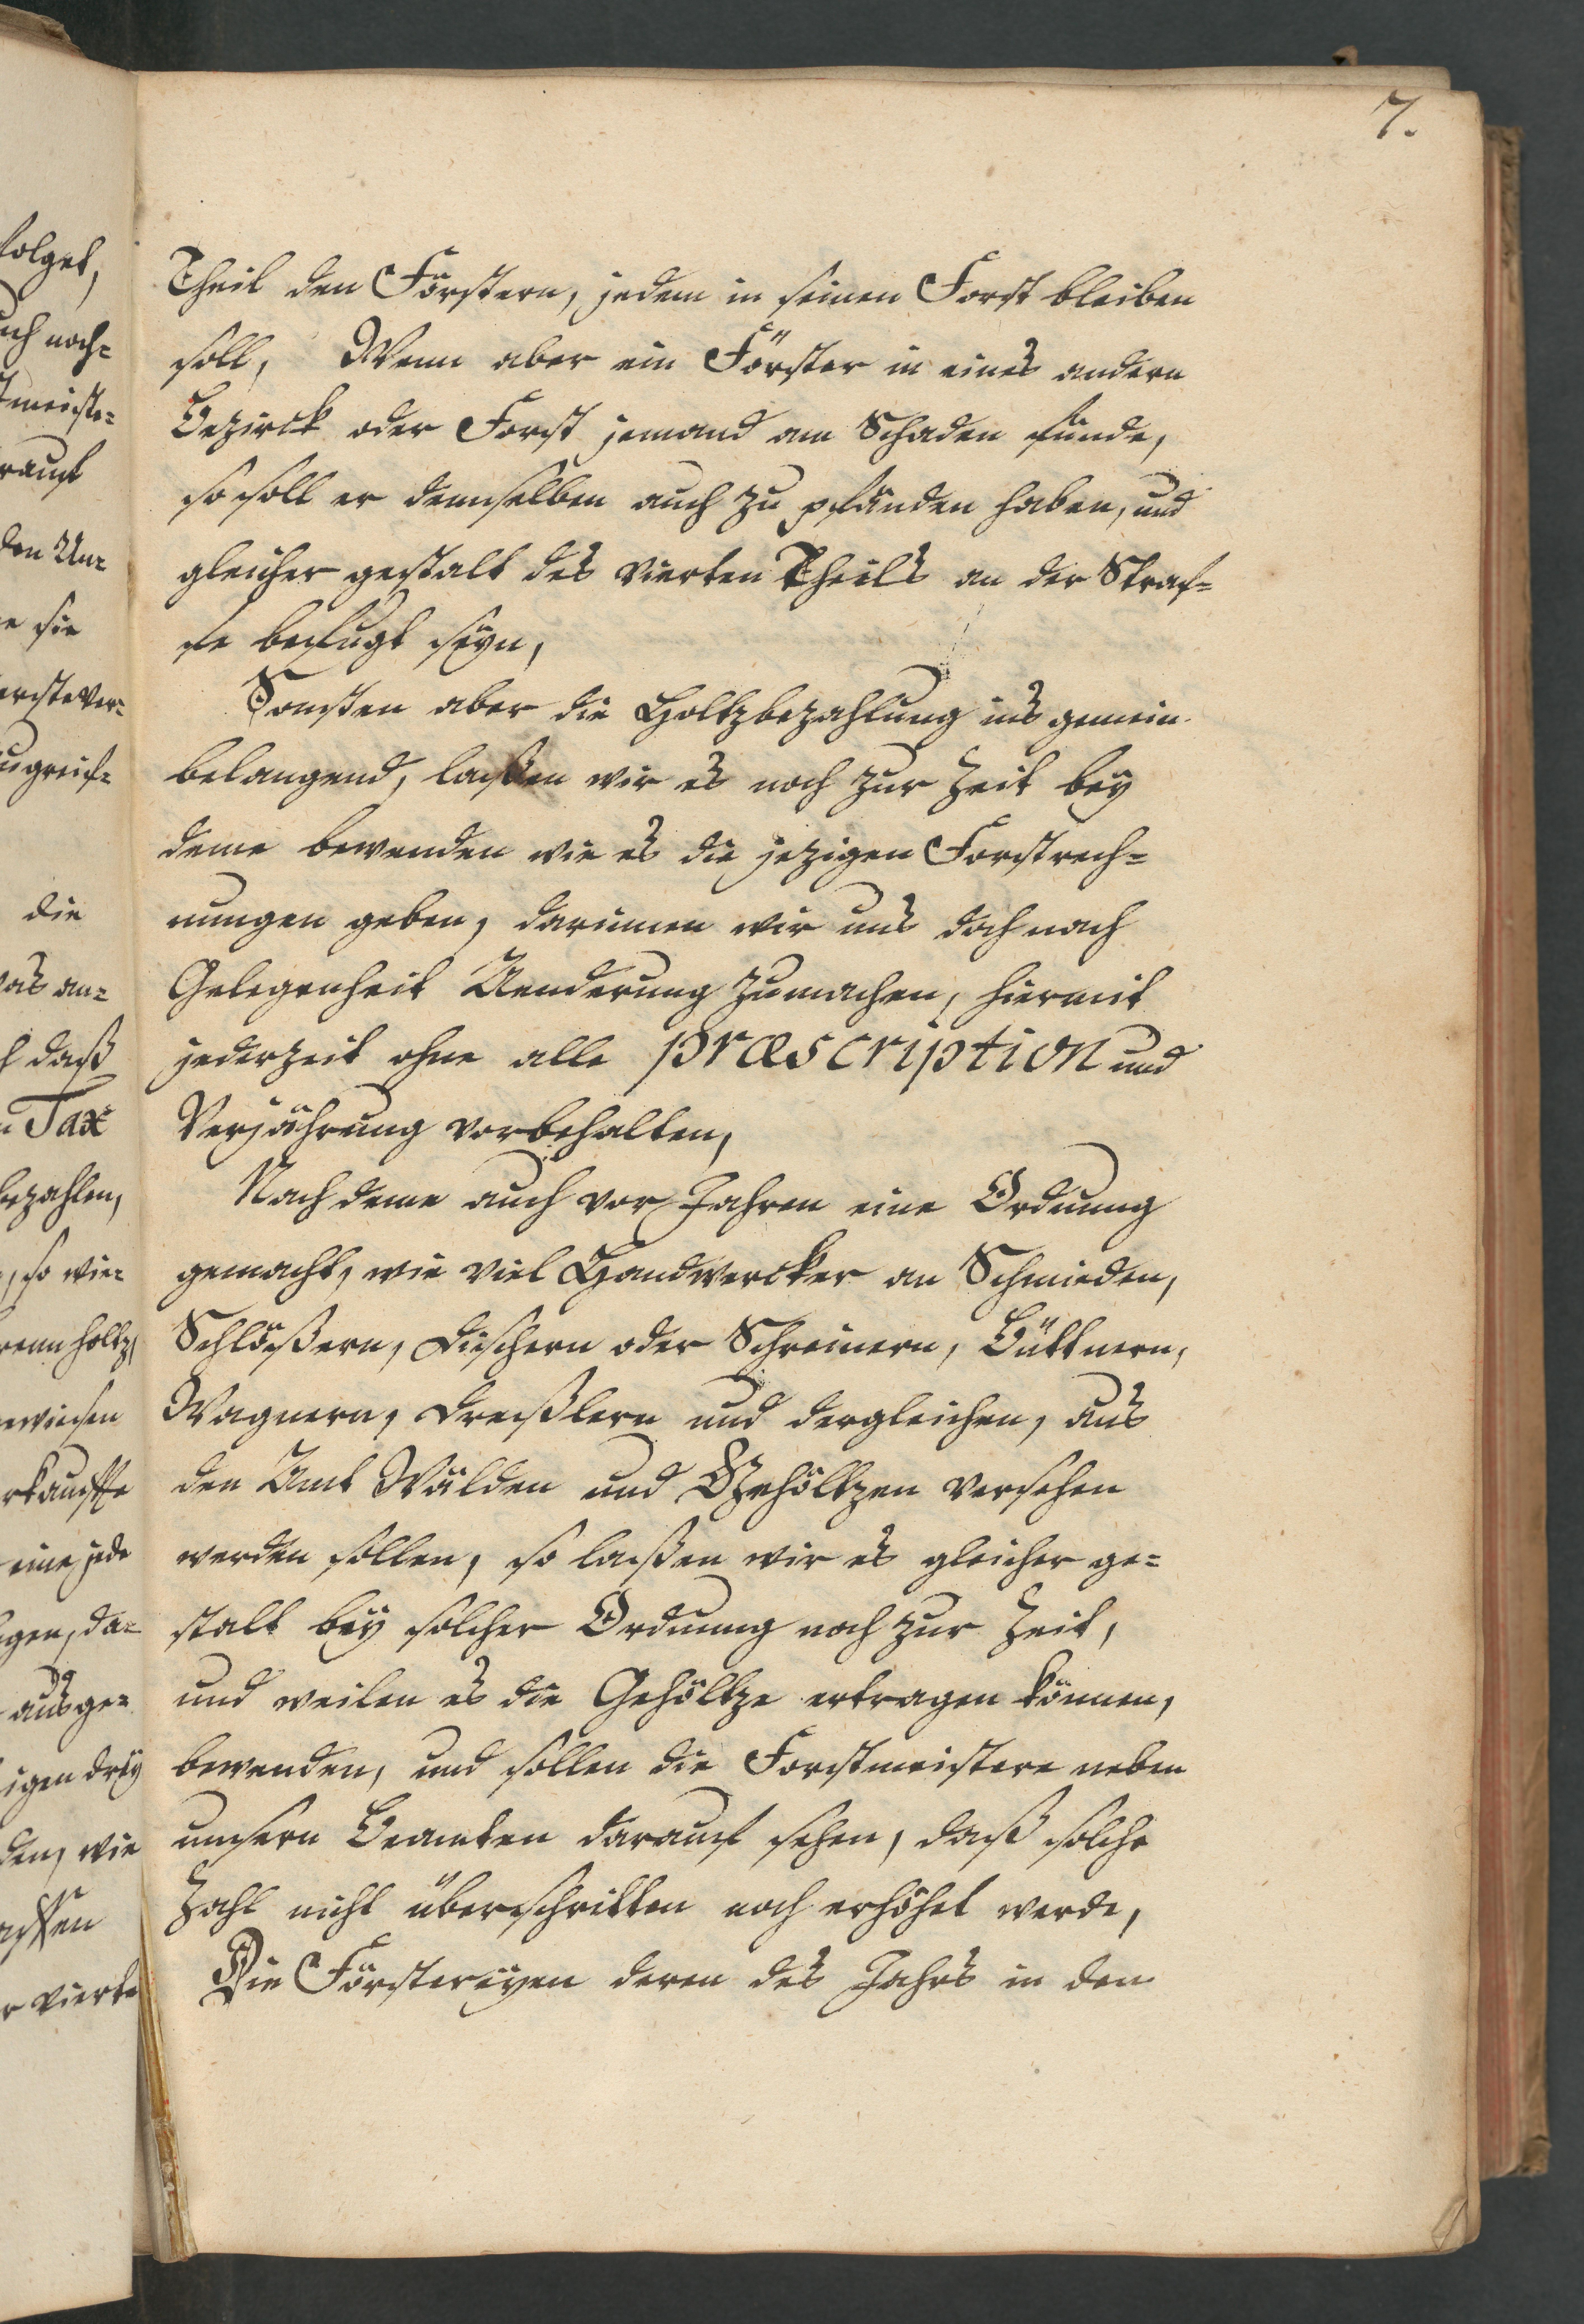 7.
folget,
uch noch=
tmeiste=
rauf
den Un=
e sie
erste ver=
ugreif=
die
was an=
h daß
n Tax
bezahlen,
, so wie=
renn holtz,
gewiesen
rkauffe
eine jede
gen, da=
ausge=
igen drey
den, wie
assen
r vierte
Theil den Förstern, jedem in seinen Forst bleiben
soll, Wenn aber ein Förster in eines andern
Bezirck oder Forst jemand am Schaden fünde,
so soll er demselben auch zu pfänden haben, und
gleicher gestalt des vierten Theils an der Straf=
fe befugt seyn,
Sonsten aber die Holtzbezahlung ins gemein
belangend, laßen wir es noch zur Zeit bey
deme bewenden wie es die jezigen Forstrech=
nungen geben, darinnen wir uns doch nach
Gelegenheit Aenderung zumachen, hiermit
jederzeit ohne alle præscription und
Verjährung vorbehalten,
Nach deme auch vor Jahren eine Ordnung
gemacht, wie viel Handwercker an Schmieden,
Schlößern, Dischern oder Schreinern, Büttnern,
Wagnern, Dreßlern und dergleichen, aus
den Amt Wälden und Gehöltzen versehen
werden sollen, so laßen wir es gleicher ge=
stalt bey solcher Ordnung noch zur Zeit,
und weilen es die Gehöltze ertragen können,
bewenden, und sollen die Forstmeistere neben
unsern Beamten darauf sehen, daß solche
Zahl nicht überschritten noch erhöhet werde,
Die Förstereyen deren des Jahrs in den